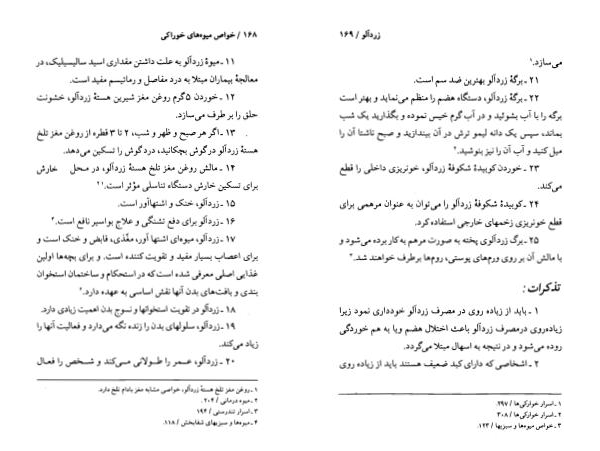 ۱۶۸ / خواص میوه‌های خوراکی
۱۱ ـ میوهٔ زردآلو به علت داشتن مقداری اسید سالیسیلیک، در
معالجهٔ بیماران مبتلا به درد مفاصل و رماتیسم مفید است.
۱۲ ـ خوردن ۵ گرم روغن مغز شیرین هستهٔ زردآلو، خشونت
حلق را بر طرف می‌سازد.
۱۳ ـ اگر هر صبح و ظهر و شب، ۲ تا ۳ قطره از روغن مغز تلخ
هستهٔ زردآلو در گوش بچکانید، درد گوش را تسکین می‌دهد.
۱۴ ـ مالش روغن مغز تلخ هستهٔ زردآلو، در محل خارش
برای تسکین خارش دستگاه تناسلی مؤثر است.۱
۱۵ ـ زردآلو، خنک و اشتهاآور است.
۱۶ ـ زردآلو برای دفع تشنگی و علاج بواسیر نافع است.۲
۱۷ ـ زردآلو، میوه‌ای اشتها آور، مغّذی، قابض و خنک است و
برای اعصاب بسیار مفید و تقویت کننده است. و برای بچه‌ها اولین
غذایی اصلی معرفی شده است که در استحکام و ساختمان استخوان
بندی و بافت‌های بدن آنها نقش اساسی به عهده دارد.۳
۱۸ ـ زردآلو در تقویت استخوانها و نسوج بدن اهمیت زیادی دارد.
۱۹ ـ زردآلو، سلولهای بدن را زنده نگه می‌دارد و فعالیت آنها را
زیاد می‌کند.
۲۰ ـ زردآلو، عمر را طولانی می‌کند و شخص را فعال
۱ ـ روغن مغز تلخ هستهٔ زردآلو، خواصی مشابه مغز بادام تلخ دارد.
۲ ـ میوه درمانی / ۲۰۴.
۳ ـ اسرار تندرستی / ۱۹۴
۴ ـ میوه‌ها و سبزیهای شفابخش / ۱۱۸.
زردآلو / ۱۶۹
می‌سازد.۱
۲۱ ـ برگهٔ زردآلو بهترین ضد سم است.
۲۲ ـ برگهٔ زردآلو، دستگاه هضم را منظم می‌نماید و بهتر است
برگه را با آب بشوئید و در آب گرم خیس نموده و بگذارید یک شب
بماند، سپس یک دانه لیمو ترش در آن بیندازید و صبح ناشتا آن را
میل کنید و آب آن را نیز بنوشید.۲
۲۳ ـ خوردن کوبیدهٔ شکوفهٔ زردآلو، خونریزی داخلی را قطع
می‌کند.
۲۴ ـ کوبیدهٔ شکوفهٔ زردآلو را می‌توان به عنوان مرهمی برای
قطع خونریزی زخمهای خارجی استفاده کرد.
۲۵ ـ برگ زردآلوی پخته به صورت مرهم به کار برده می‌شود و
با مالش آن بر روی ورم‌های پوستی، روم‌ها برطرف خواهند شد.۳
تذکرات :
۱ ـ باید از زیاده روی در مصرف زردآلو خودداری نمود زیرا
زیاده‌روی درمصرف زردآلو باعث اختلال هضم ویا به هم خوردگی
روده می‌شود و در نتیجه به اسهال مبتلا می‌گردد.
۲ ـ اشخاصی که دارای کبد ضعیف هستند باید از زیاده روی
۱ ـ اسرار خوارکی‌ها / ۲۹۷.
۲ ـ اسرار خوارکی‌ها / ۳۰۸
۳ ـ خواص میوه‌ها و سبزیها / ۱۲۳.